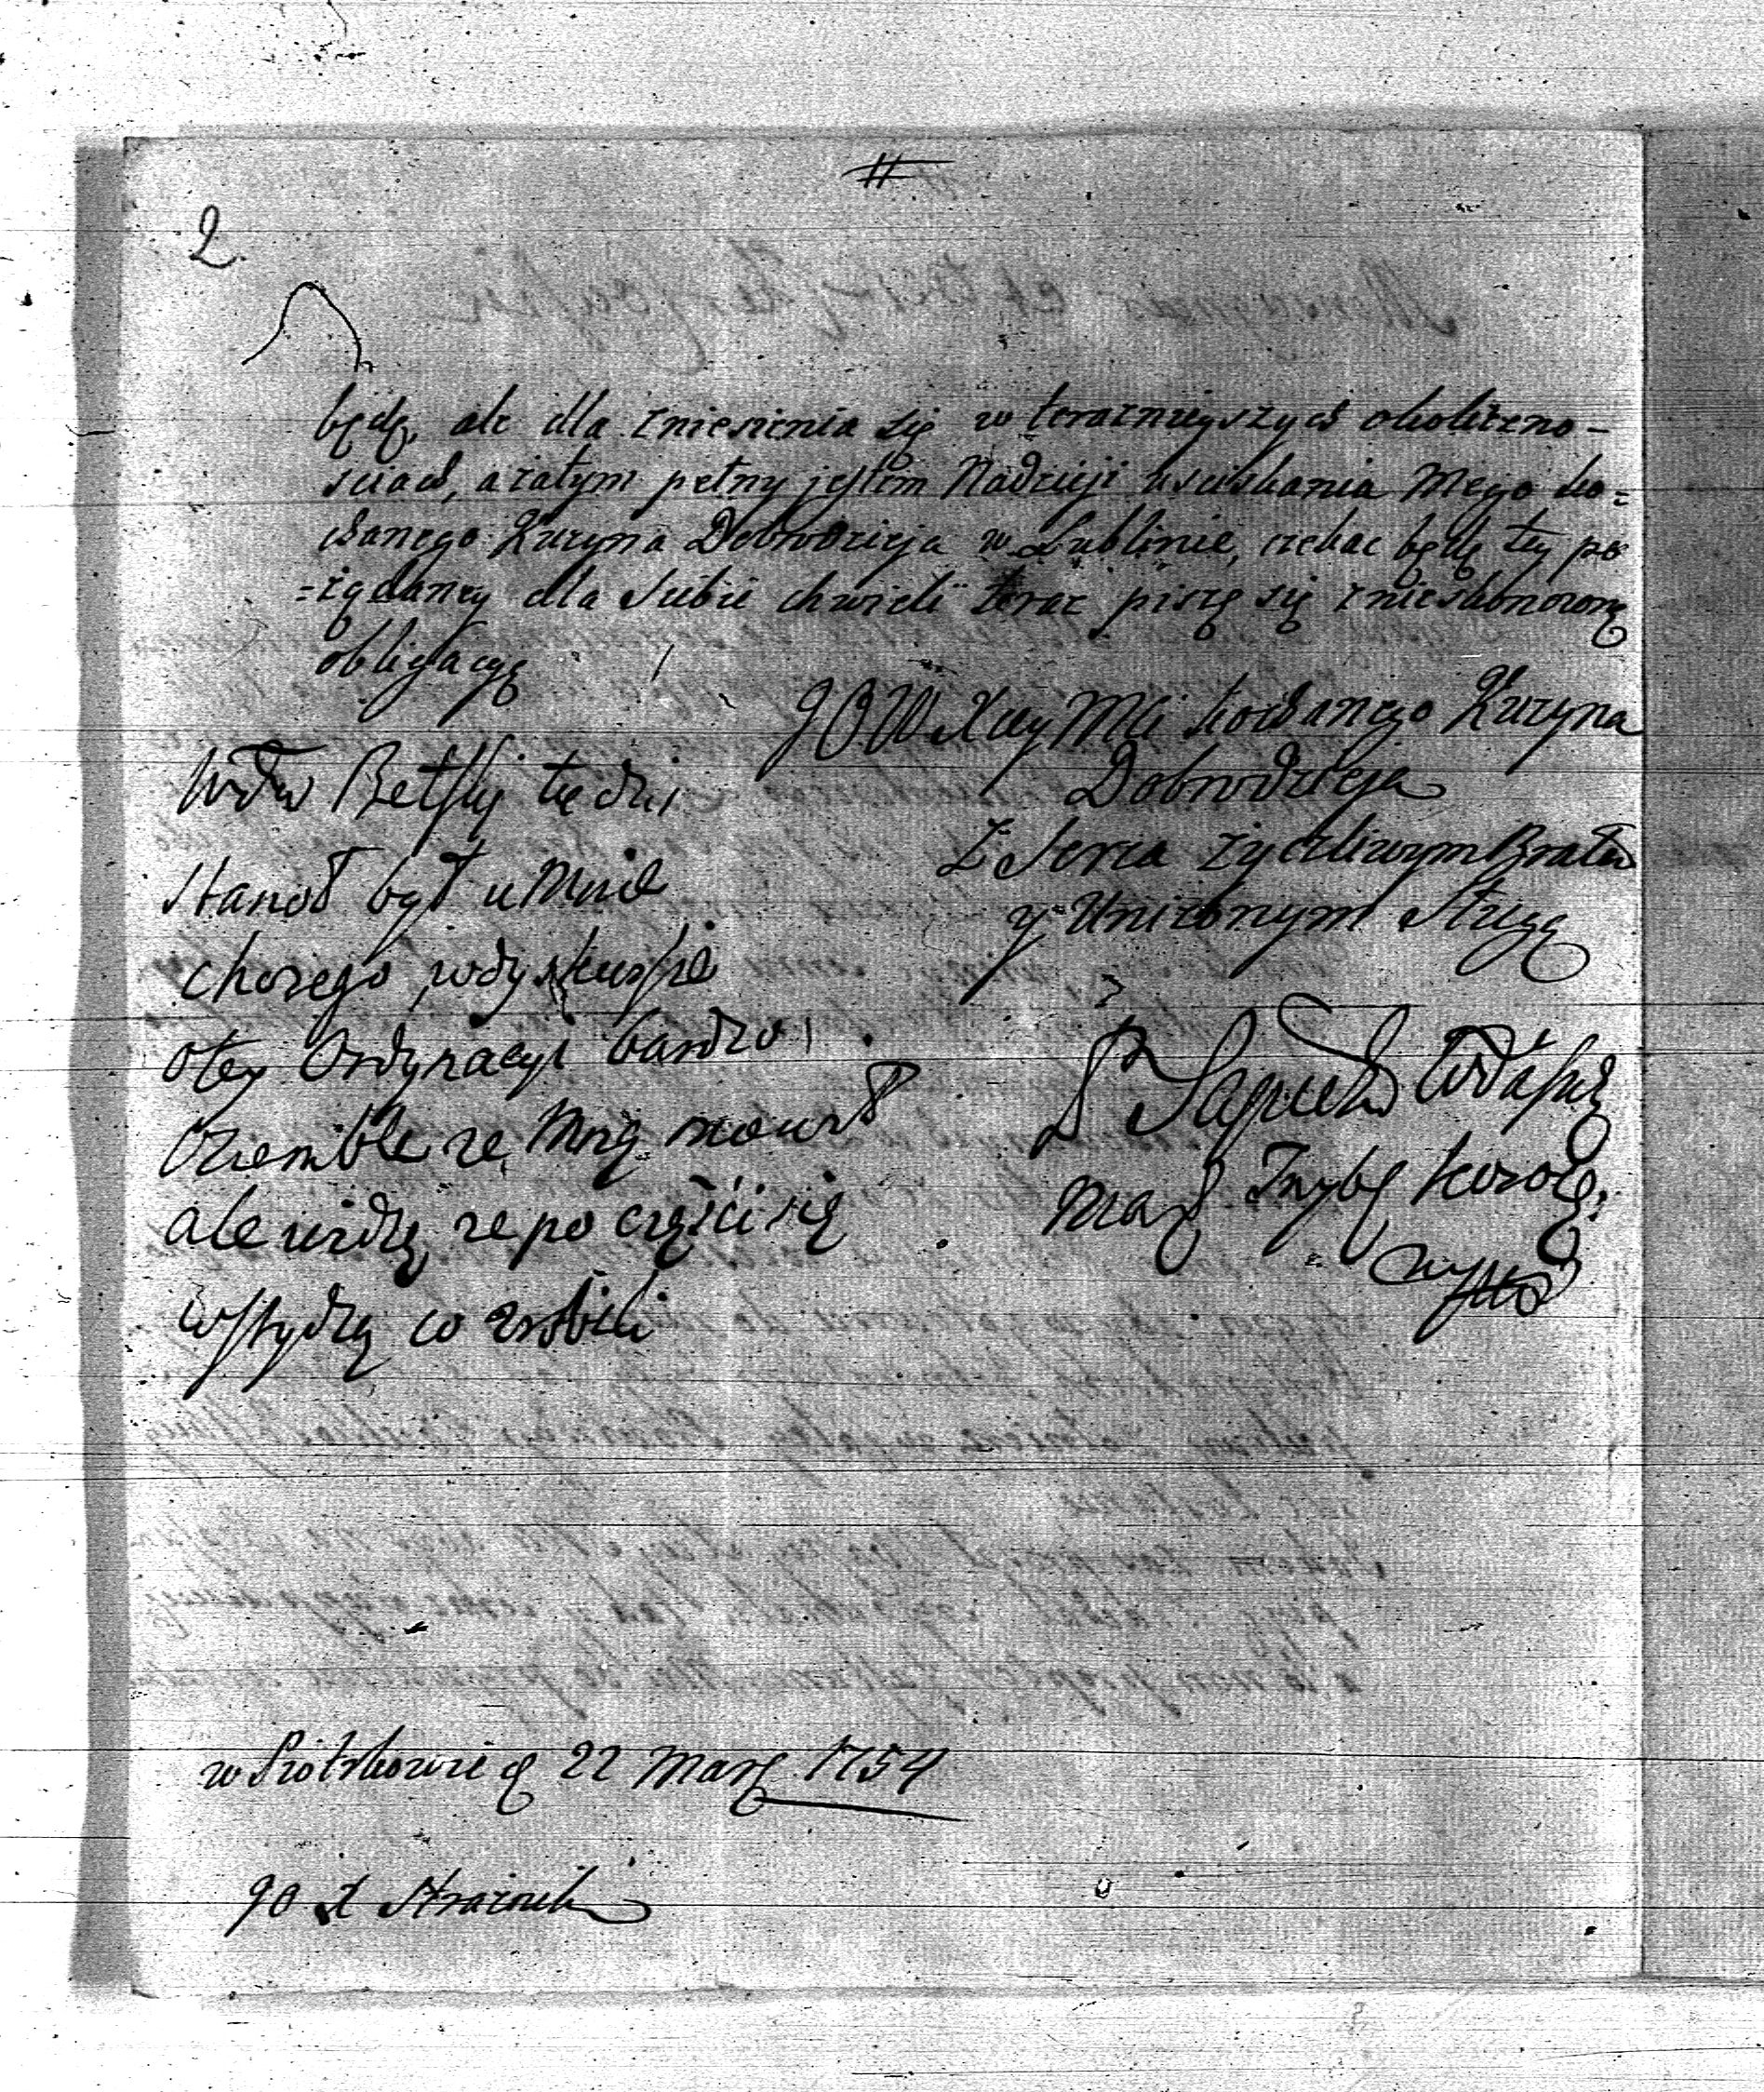 2.
będę, ale dla zniesienia się w teraznieyszych okoliczno-
sciach, a zatym pełny jestem Nadzieji usciskania Mego ko=
chanego Kuzyna Dobrodzieja w Lublinie, czekac będę tey po
=żądaney dla siebie chwieli teraz piszę się z nieskonczoną
obligacyą
JOWXcey Mci kochanego Kuzyna
Dobrodzieja
Z Serca życzliwym Bratem
y Unizonym Sługą
Sapieha
Mar Tryb Koro
Wda Betski tędzi
stanoł był u Mnie
chorego, w dyskursie
o tey Ordynacyi bardzo
ozemble ze Mną mowił
ale widzę, ze po części się
wstydzą co zrobili
w Piotrkowie d 22 Mar 1754
JO X Straznik